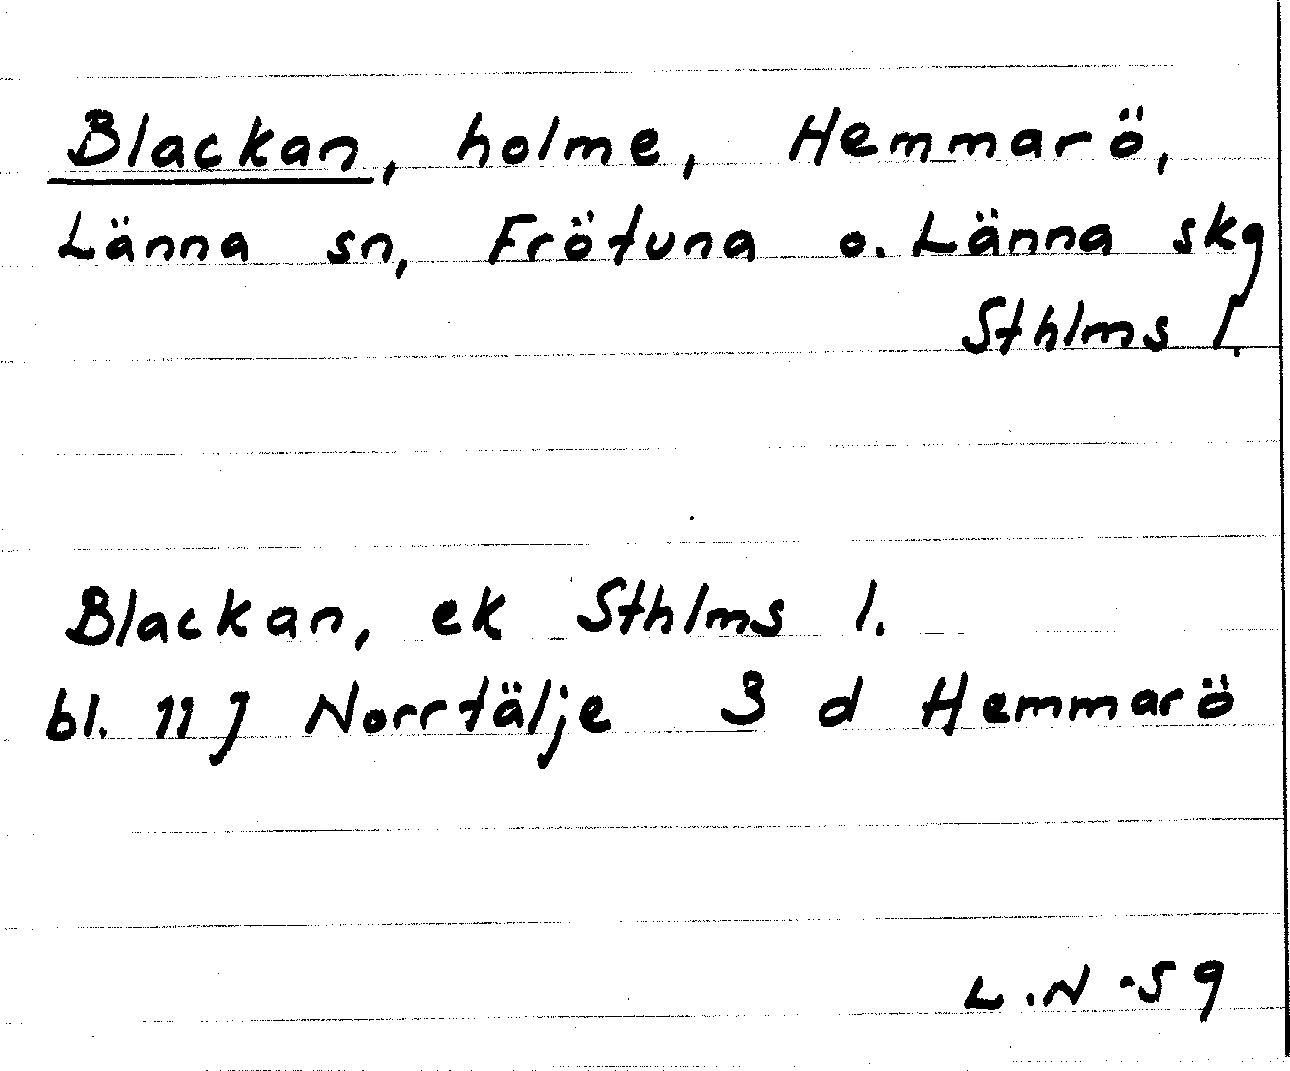 Blackan, holme, Hemmarö,
Länna sn, Frötuna o. Länna skg
Sthlms l.
Blackan, ek Sthlms l.
bl. 11 J Norrtälje 3 d Hemmarö
L.N -59